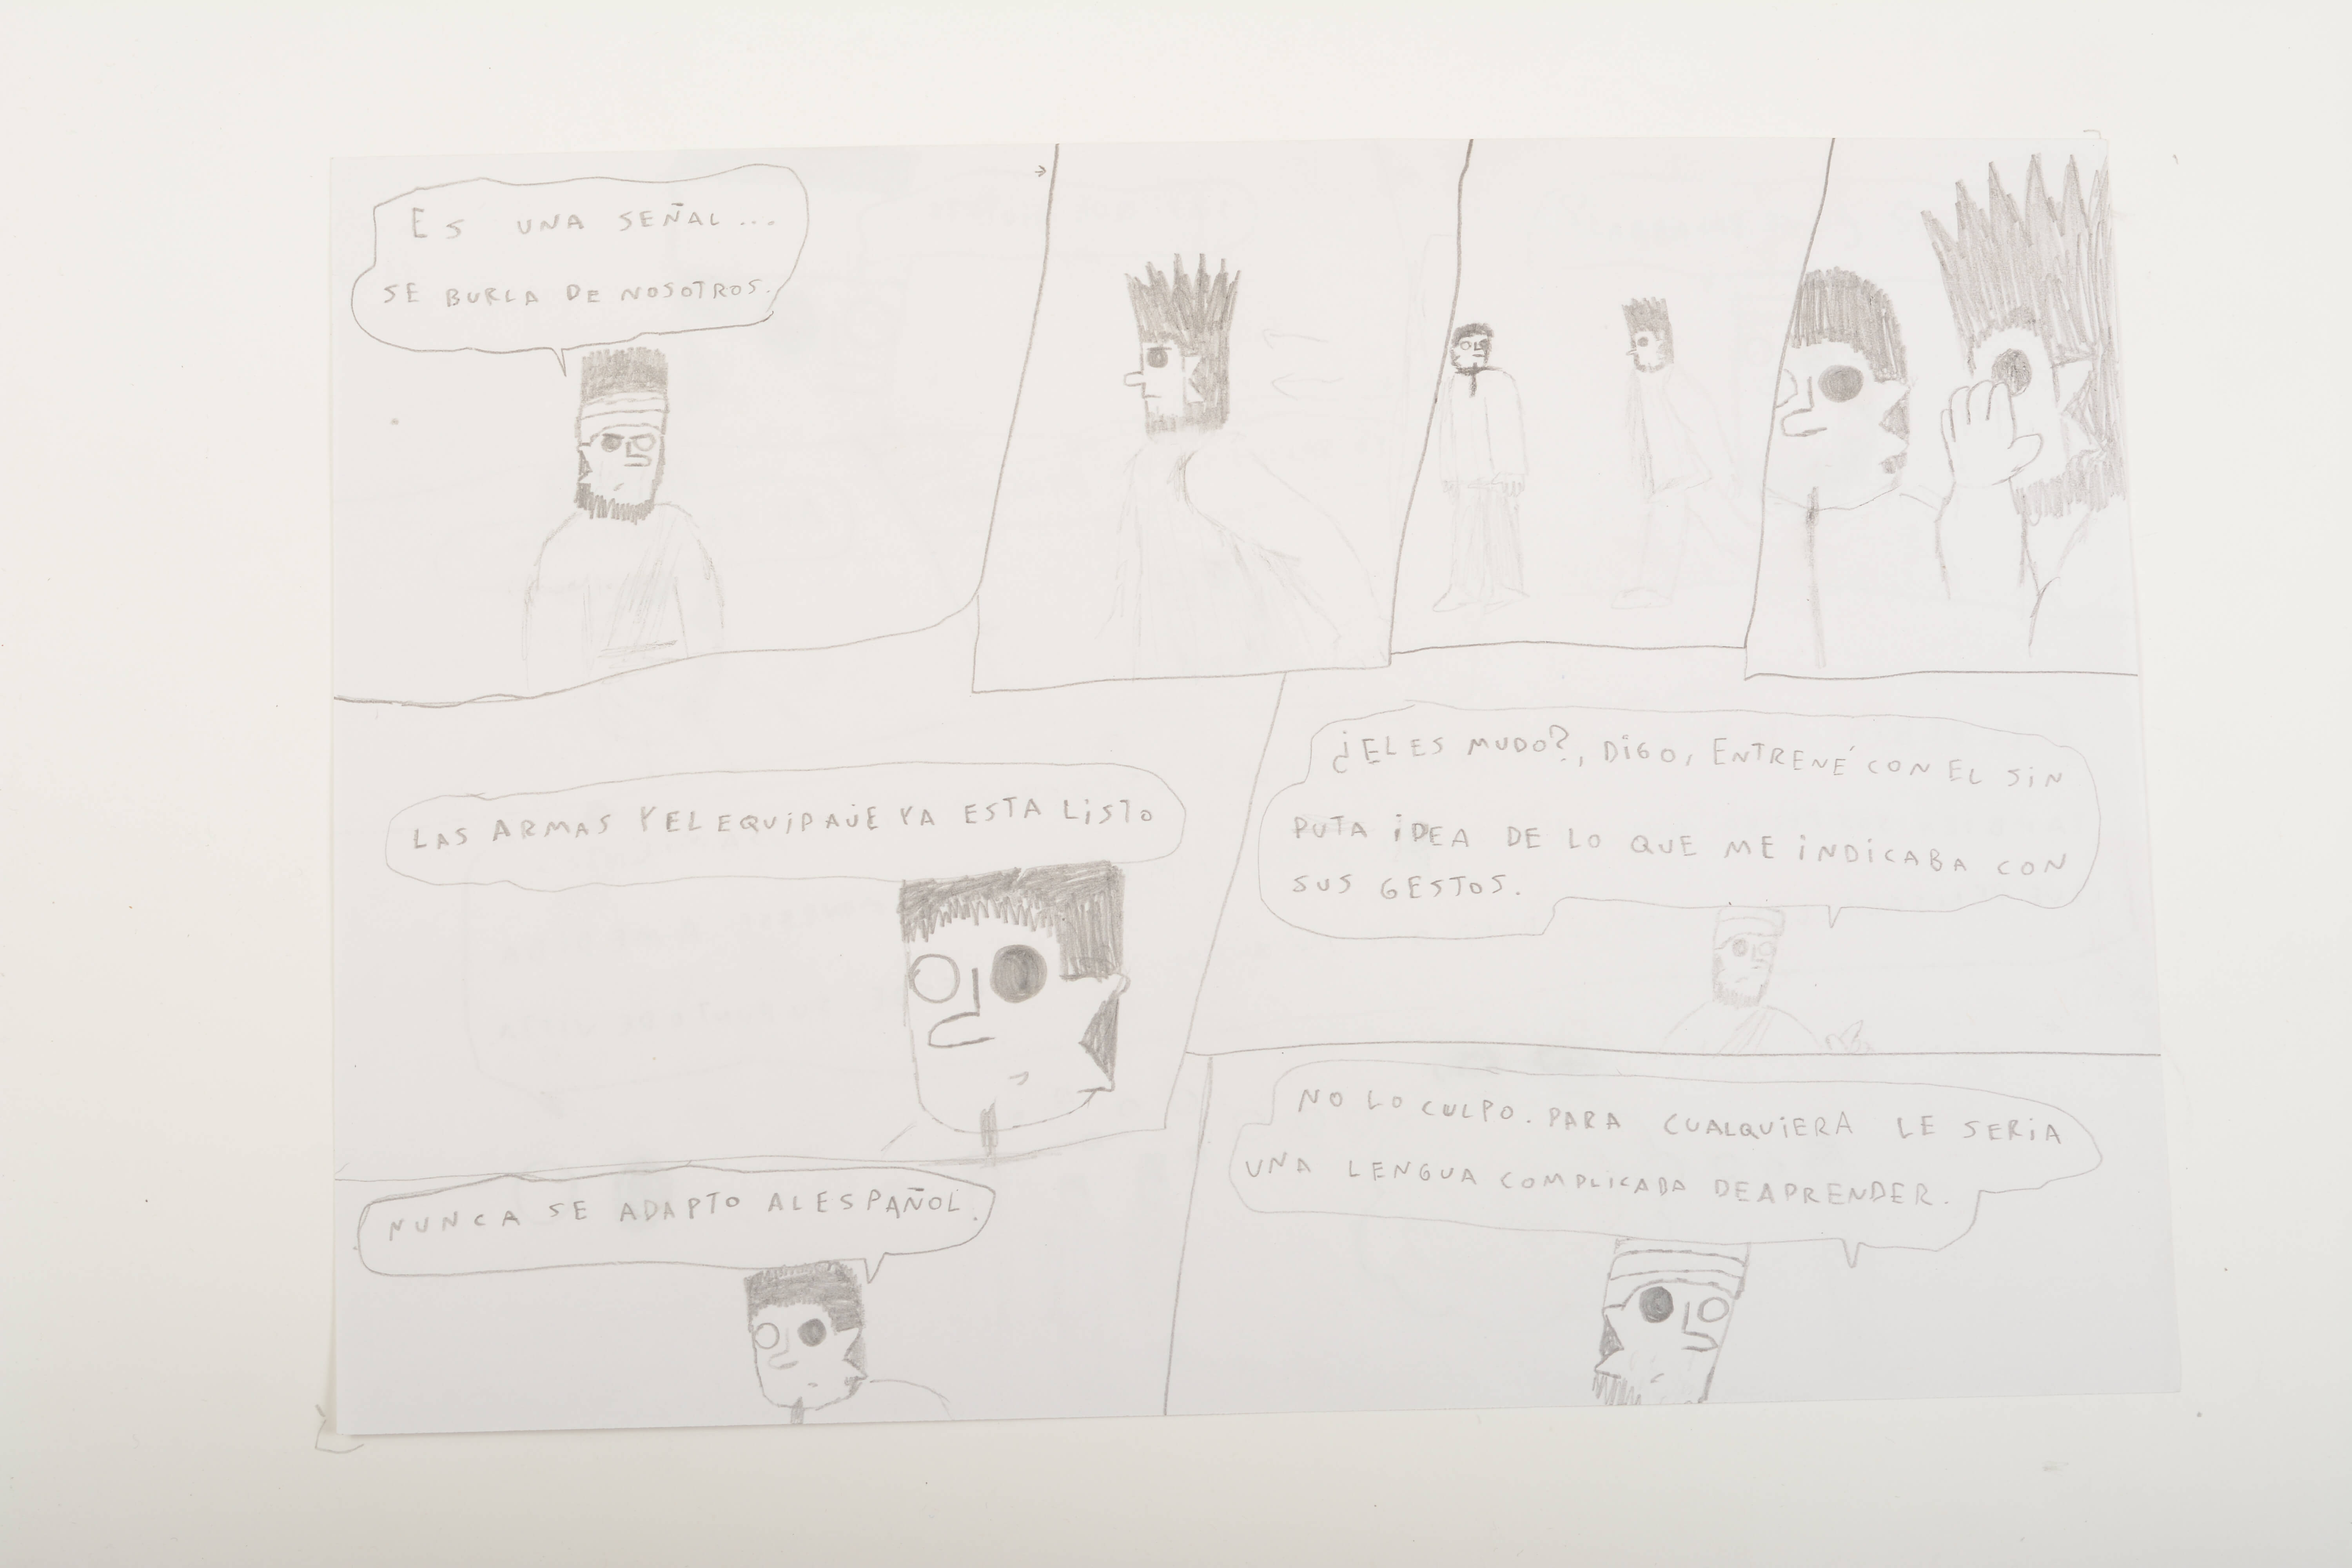 ES UNA SEÑAL...
SE BURLA DE NOSOTROS.
LAS ARMAS Y EL EQUIPAJE YA ESTA LISTO
¿EL ES MUDO?, DIGO, ENTRENÉ CON EL SIN
PUTA IDEA DE LO QUE ME INDICABA CON
SUS GESTOS.
NUNCA SE ADAPTO AL ESPAÑOL.
NO LO CULPO. PARA CUALQUIERA LE SERIA
UNA LENGUA COMPLICADA DE APRENDER.